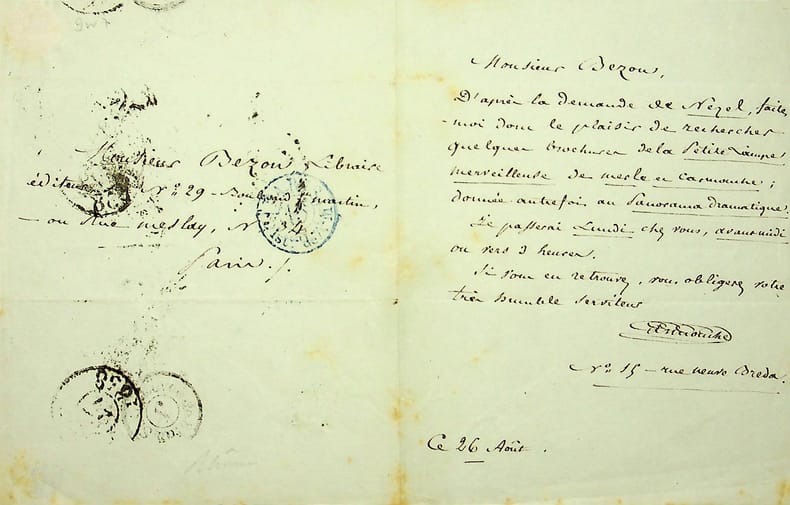 Monsieur Bezou, Libraire
éditeur, Nº 29 - Boulevard St martin,
- ou Rue meslay, Nº 34
Paris.
Monsieur Bezou,
D'après la demande de Nézel, faites
-moi donc le plaisir de rechercher
quelques brochures de la Petite Lampe
merveilleuse de merle et Carmouche;
donnée autrefois au Panorama dramatique.
Je passerai Lundi chez vous, avant-midi
ou vers 3 heures.
Si vous en retrouvez, vous obligerez votre
très humble serviteur
Carmouche
Nº 15 - rue neuve Breda.
Ce 26 Août.